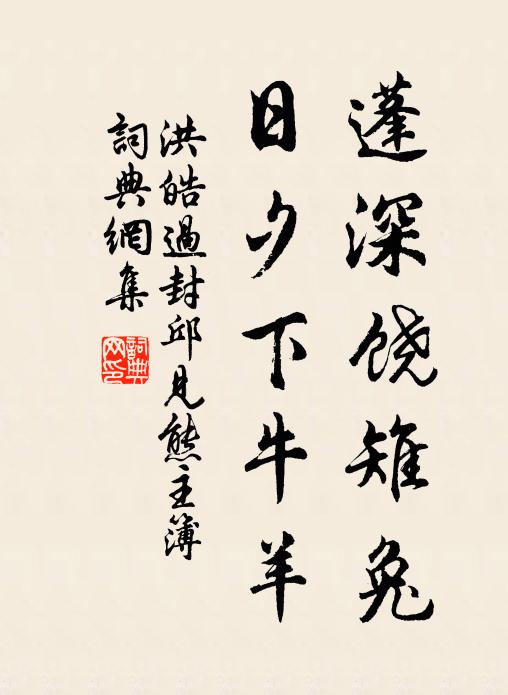 蓬深饶雉兔
日夕下牛羊
洪皓過封邱見熊主簿
詞典網集
詞典网印